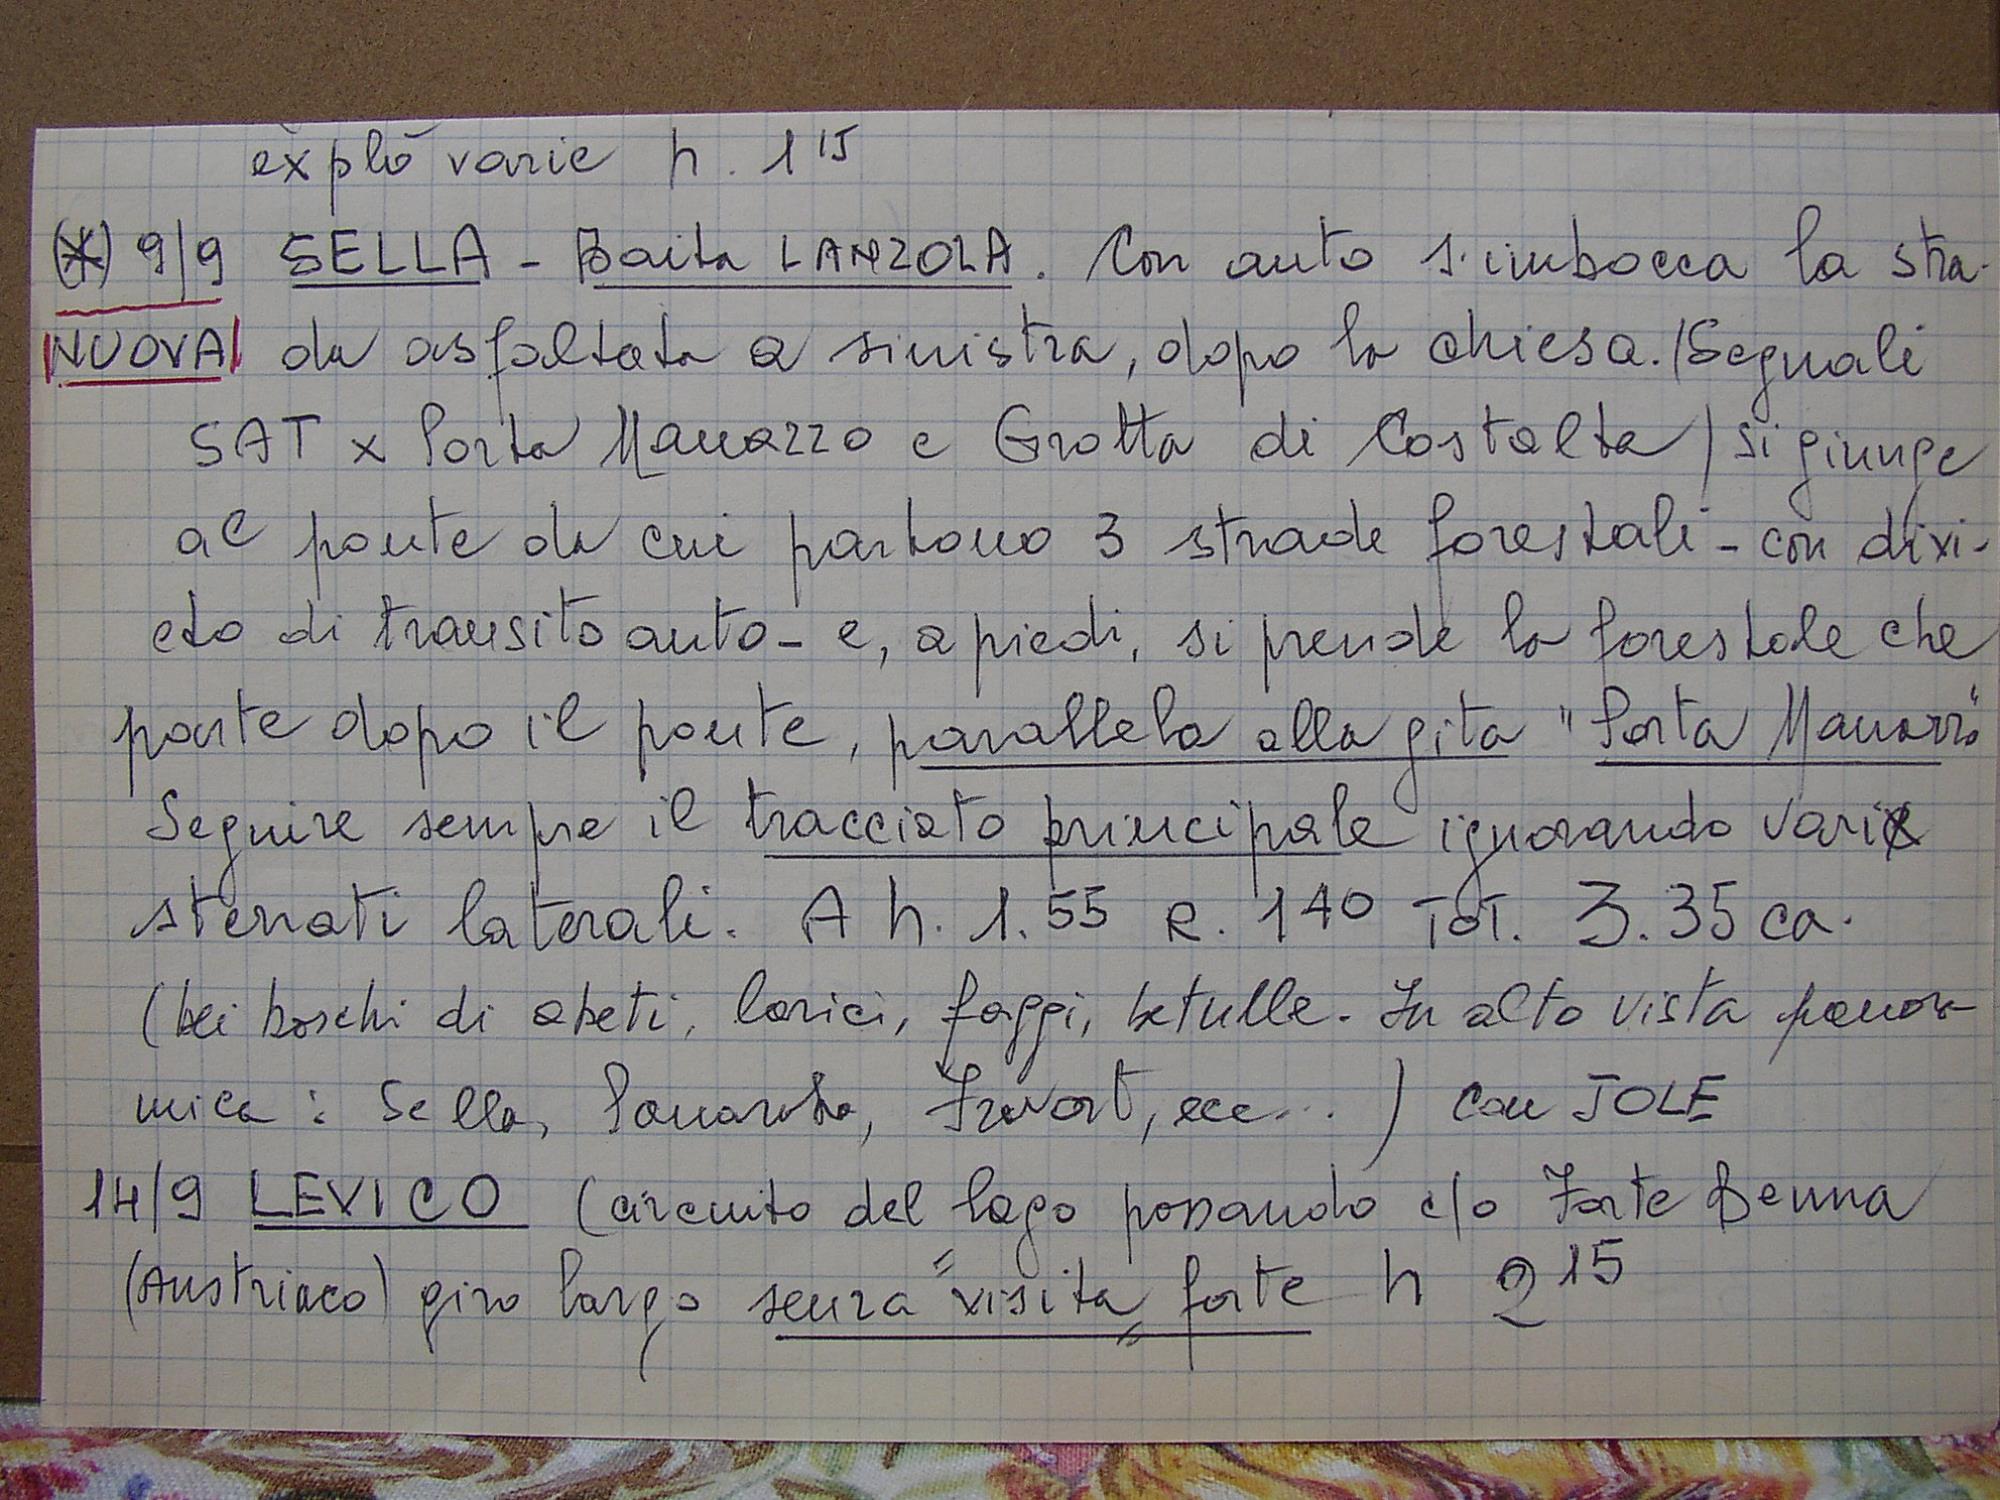 explò varie h. 1 15
(*) 9/9 SELLA - Baita LANZOLA. Con auto s'imbocca la stra-
NUOVA da asfaltata a sinistra, dopo la chiesa. (Segnali
SAT x Porta Manazzo e Grotta di Costalta) si giunge
al ponte da cui partono 3 strade forestali - con divi-
eto di transito auto - e, a piedi, si prende la forestale che
parte dopo il ponte, parallela alla gita "Porta Manazzo"
Seguire sempre il tracciato principale ignorando vari
sterrati laterali. A h. 1.55 R. 140 TOT. 3.35 ca.
(bei boschi di abeti, larici, faggi, betulle. In alto vista panora-
mica: Sella, Panarotta, Fravort, ecc...) con JOLE
14/9 LEVICO (circuito del lago passando c/o Forte Benna
(Austriaco) giro largo senza "visita" forte h 2 15